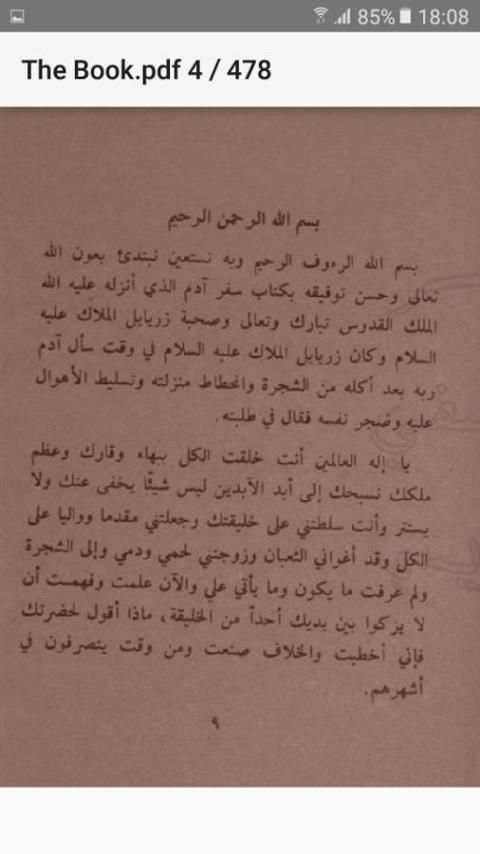 85% 18:08
The Book.pdf 4 / 478
بسم الله الرحمن الرحيم
بسم الله الرءوف الرحيم وبه نستعين نبتدئ بعون الله
تعالى وحسن توفيقه بكتاب سفر آدم الذي أنزله عليه الله
الملك القدوس تبارك وتعالى وصحبة زريايل الملاك عليه
السلام وكان زريايل الملاك عليه السلام في وقت سأل آدم
ربه بعد أكله من الشجرة وانحطاط منزلته وتسليط الأهوال
عليه وضجر نفسه فقال في طلبته.
يا إله العالمين أنت خلقت الكل ببهاء وقارك وعظم
ملكك نسبحك إلى أبد الآبدين ليس شيئًا يخفى عنك ولا
يستتر وأنت سلطتني على خليقتك وجعلتني مقدما وواليا على
الكل وقد أغواني الثعبان وزوجتي لحمي ودمي وإلى الشجرة
ولم عرفت ما يكون وما يأتي علي والآن علمت وفهمت أن
لا يزكوا بين يديك أحداً من الخليقة، ماذا أقول لحضرتك
فإني أخطيت والخلاف صنعت ومن وقت يتصرفون في
أشهرهم.
٩